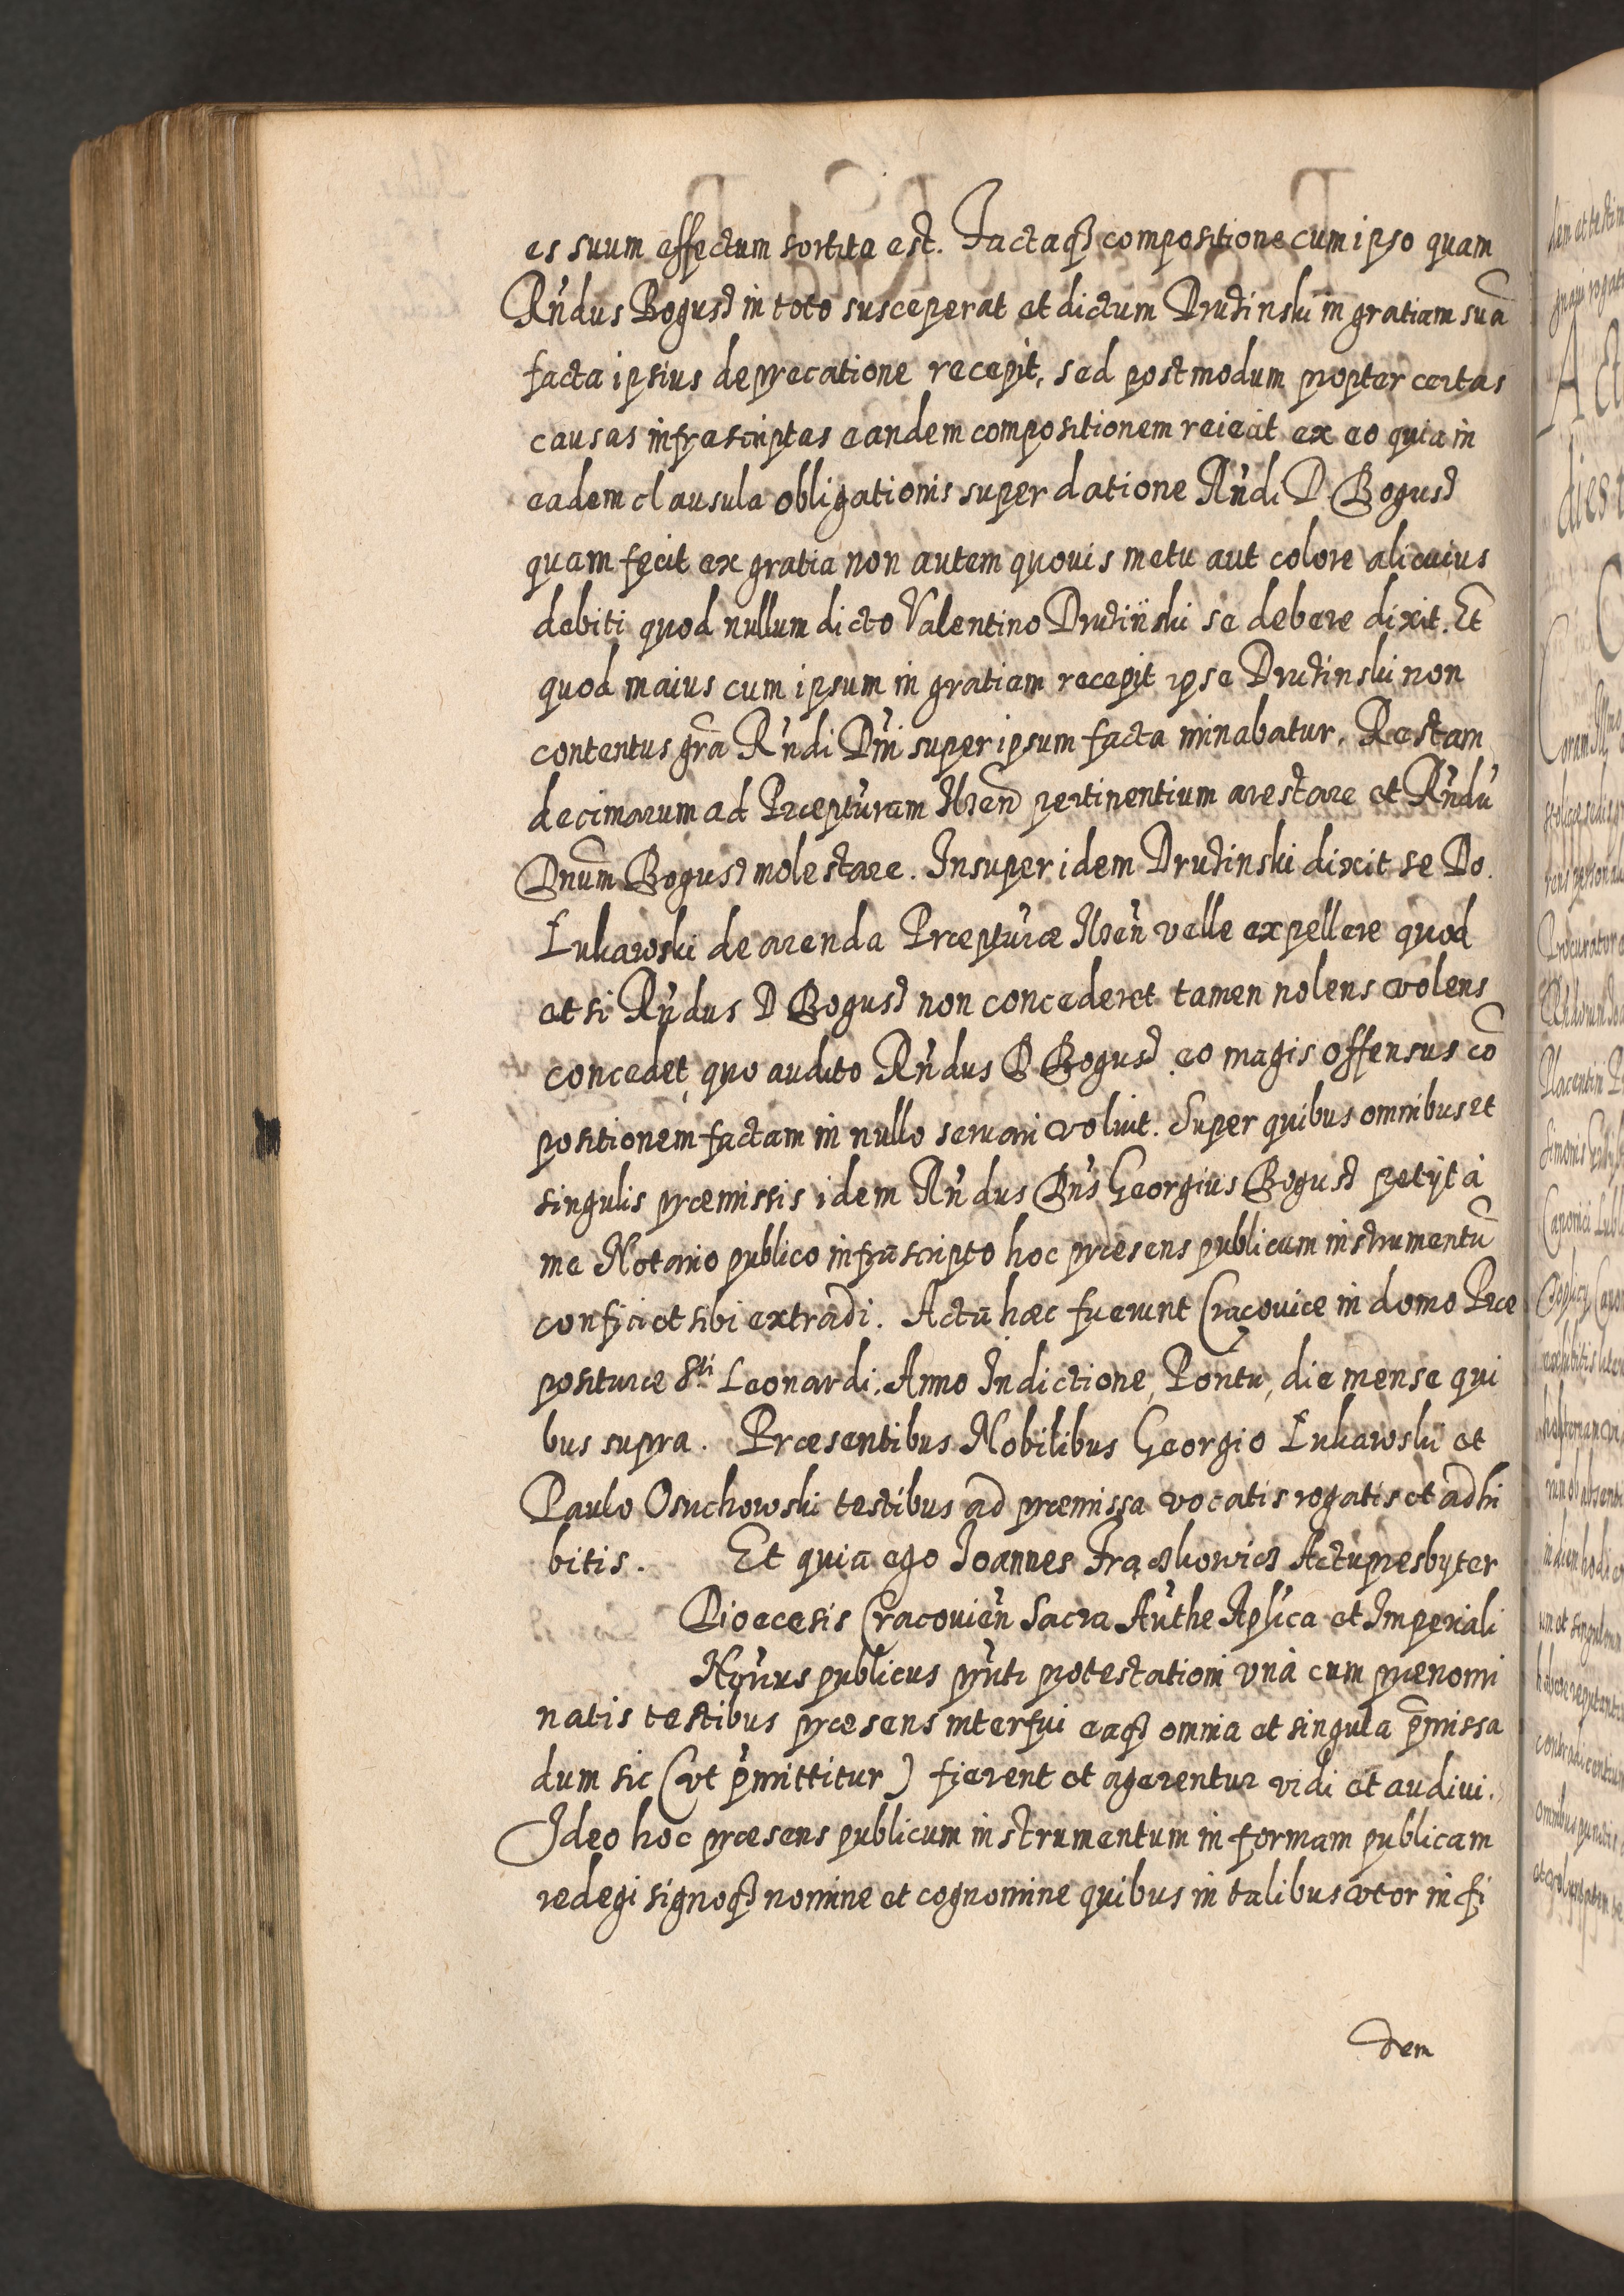 es suum effectum sortita est. Factaq₃ compositione cum ipso quam
Rńdus Bogusz in toto susceperat et dictum Druzinski in gratiam suã
facta ipsius deprecatione recepit, sed postmodum propter certas
causas infrascriptas eandem compositionem reiecit ex eo quia in
eadem clausula obligationis super datione Rńdi D Bogusz
quam fecit ex gratia non autem quouis metu aut colore alicuius
debiti quod nullum dicto Valentino Druzinski se debere dixit. Et
quod maius cum ipsum in gratiam recepit ipse Druzinski non
contentus grã Rńdi Dńi super ipsum facta minabatur. Restam
decimarum ad Præpturam pertinentium arestare et Rńdũ
Dnum Bogusz molestare. Insuper idem Druzinski dixit se Do.
Łukawski de arenda Præpturæ velle expellere quod
et si Rńdus D Bogusz non concederet tamen nolens volens
concedet, quo audito Rńdus D Bogusz eo magis offensus cõ
positionem factam in nullo seruari voluit. Super quibus omnibus et
singulis præmissis idem Rńdus Dńs Georgius Bogusz petijt à
me Notario publico infrascripto hoc præsens publicum instrumentũ
confici et sibi extradi. Acta hæc fuerunt Cracouiæ in domo Præ
posituræ Sti Leonardi. Anno Indictione, Pontu, die mense qui
bus supra. Præsentibus Nobilibus Georgio Łukawski et
Paulo Osuchowski testibus ad præmissa vocatis rogatis et adhi
bitis. Et quia ego Joannes Frączkowicz Actu presbyter
Dioecesis Cracouień Sacra Authe Aplica et Imperiali
Notrius publicus pńti protestationi vnà cum prænomi
natis testibus præsens interfui eaq₃ omnia et singula p̃missa
dum sic (vt p̃mittitur) fierent et agerentur vidi et audiui.
Ideo hoc præsens publicum instrumentum in formam publicam
redegi signoq₃ nomine et cognomine quibus in talibus vtor in fi
dem